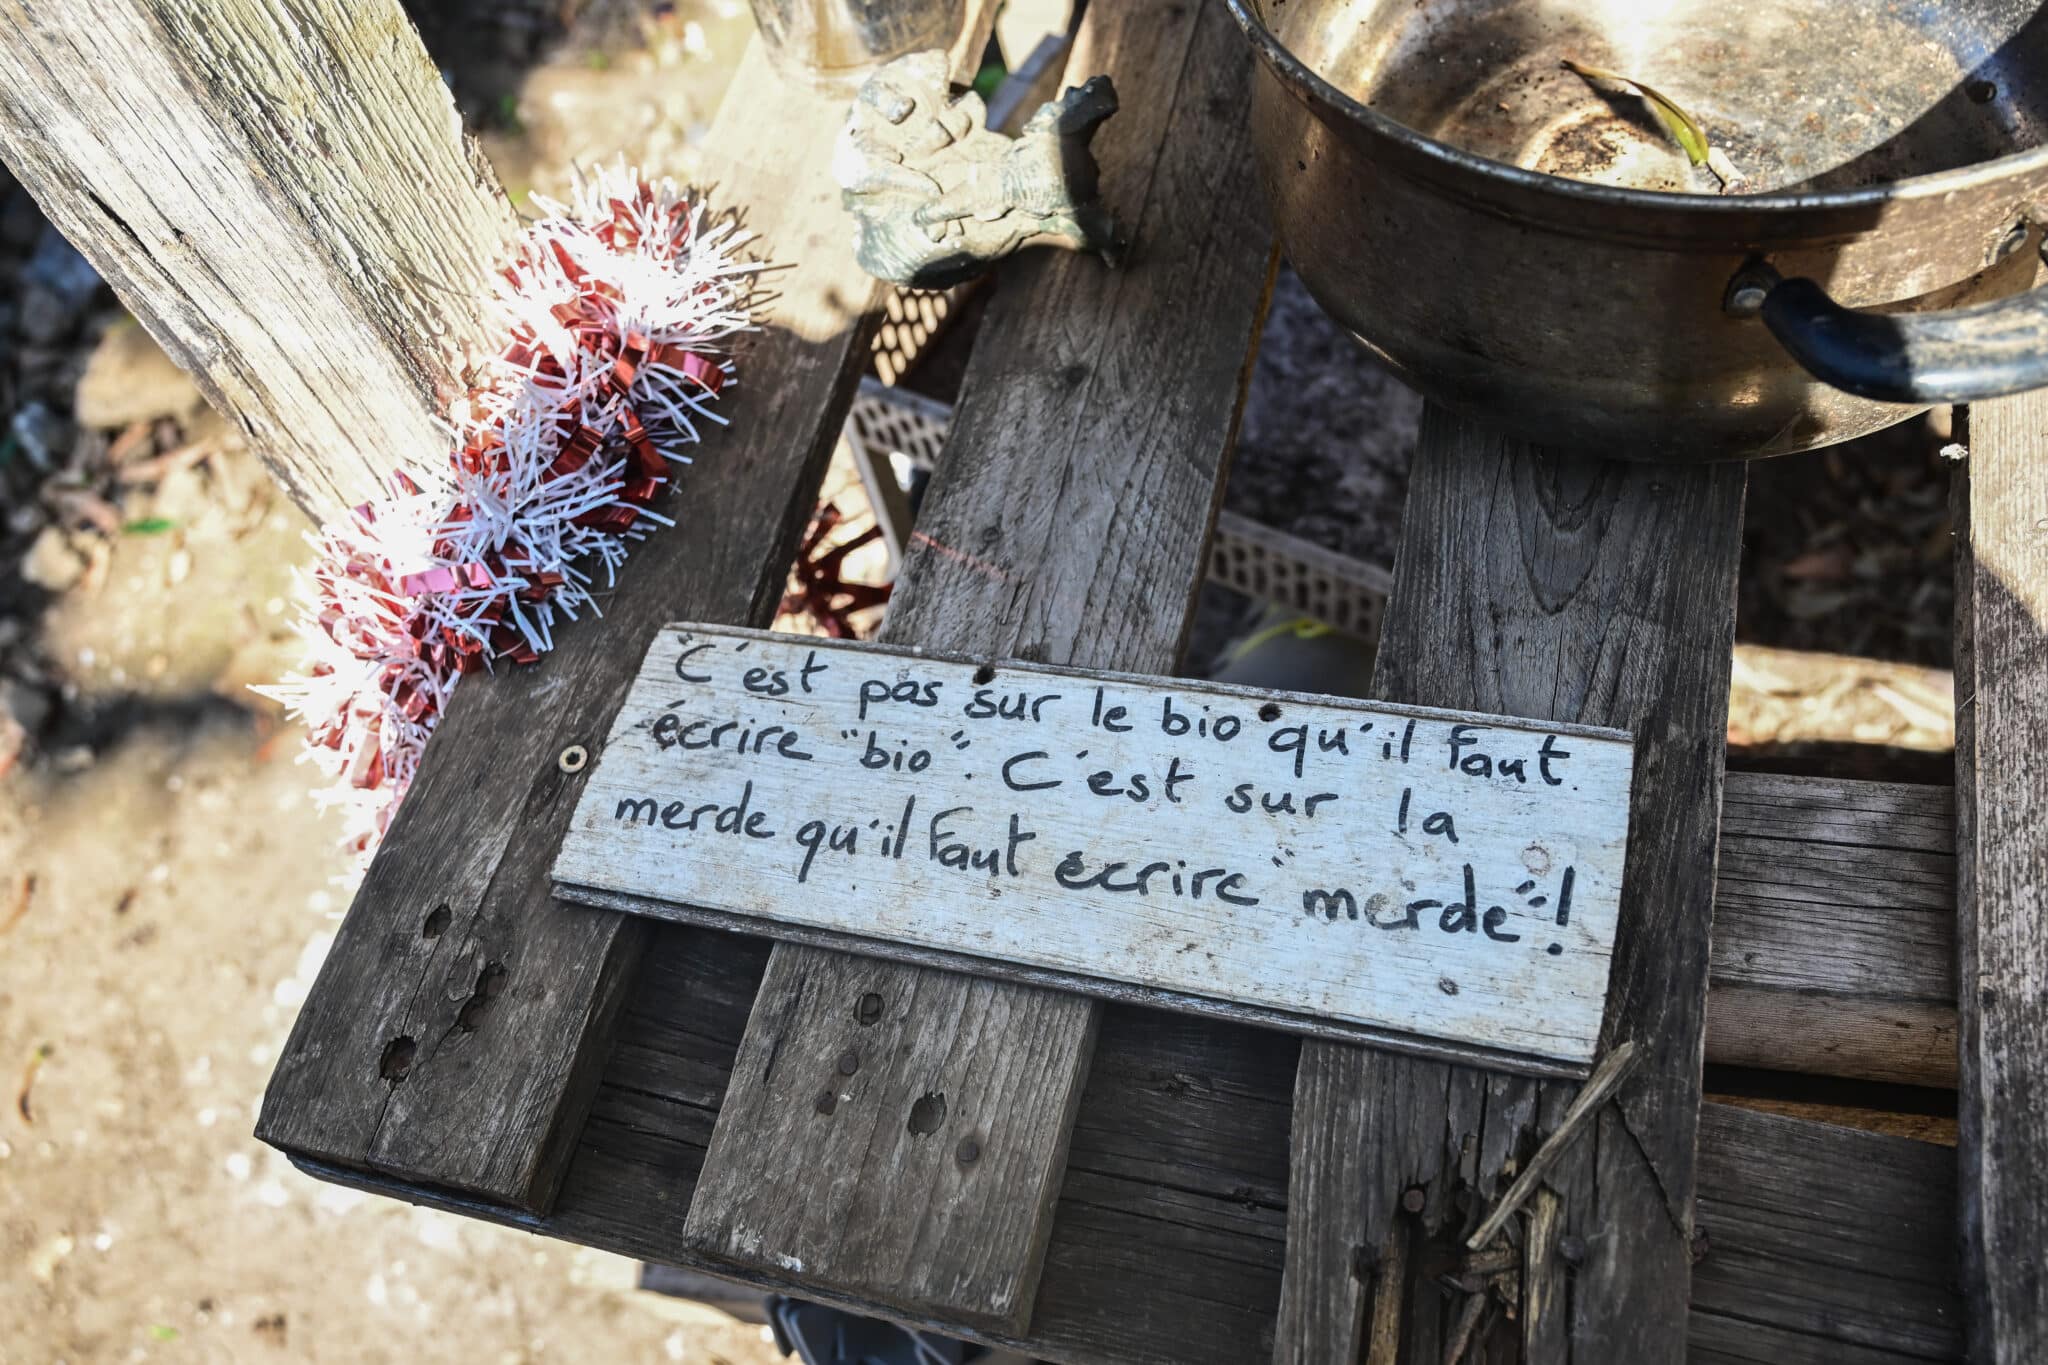 "C'est pas sur le bio qu'il faut.
écrire "bio". C'est sur la
merde qu'il faut écrire "merde"!